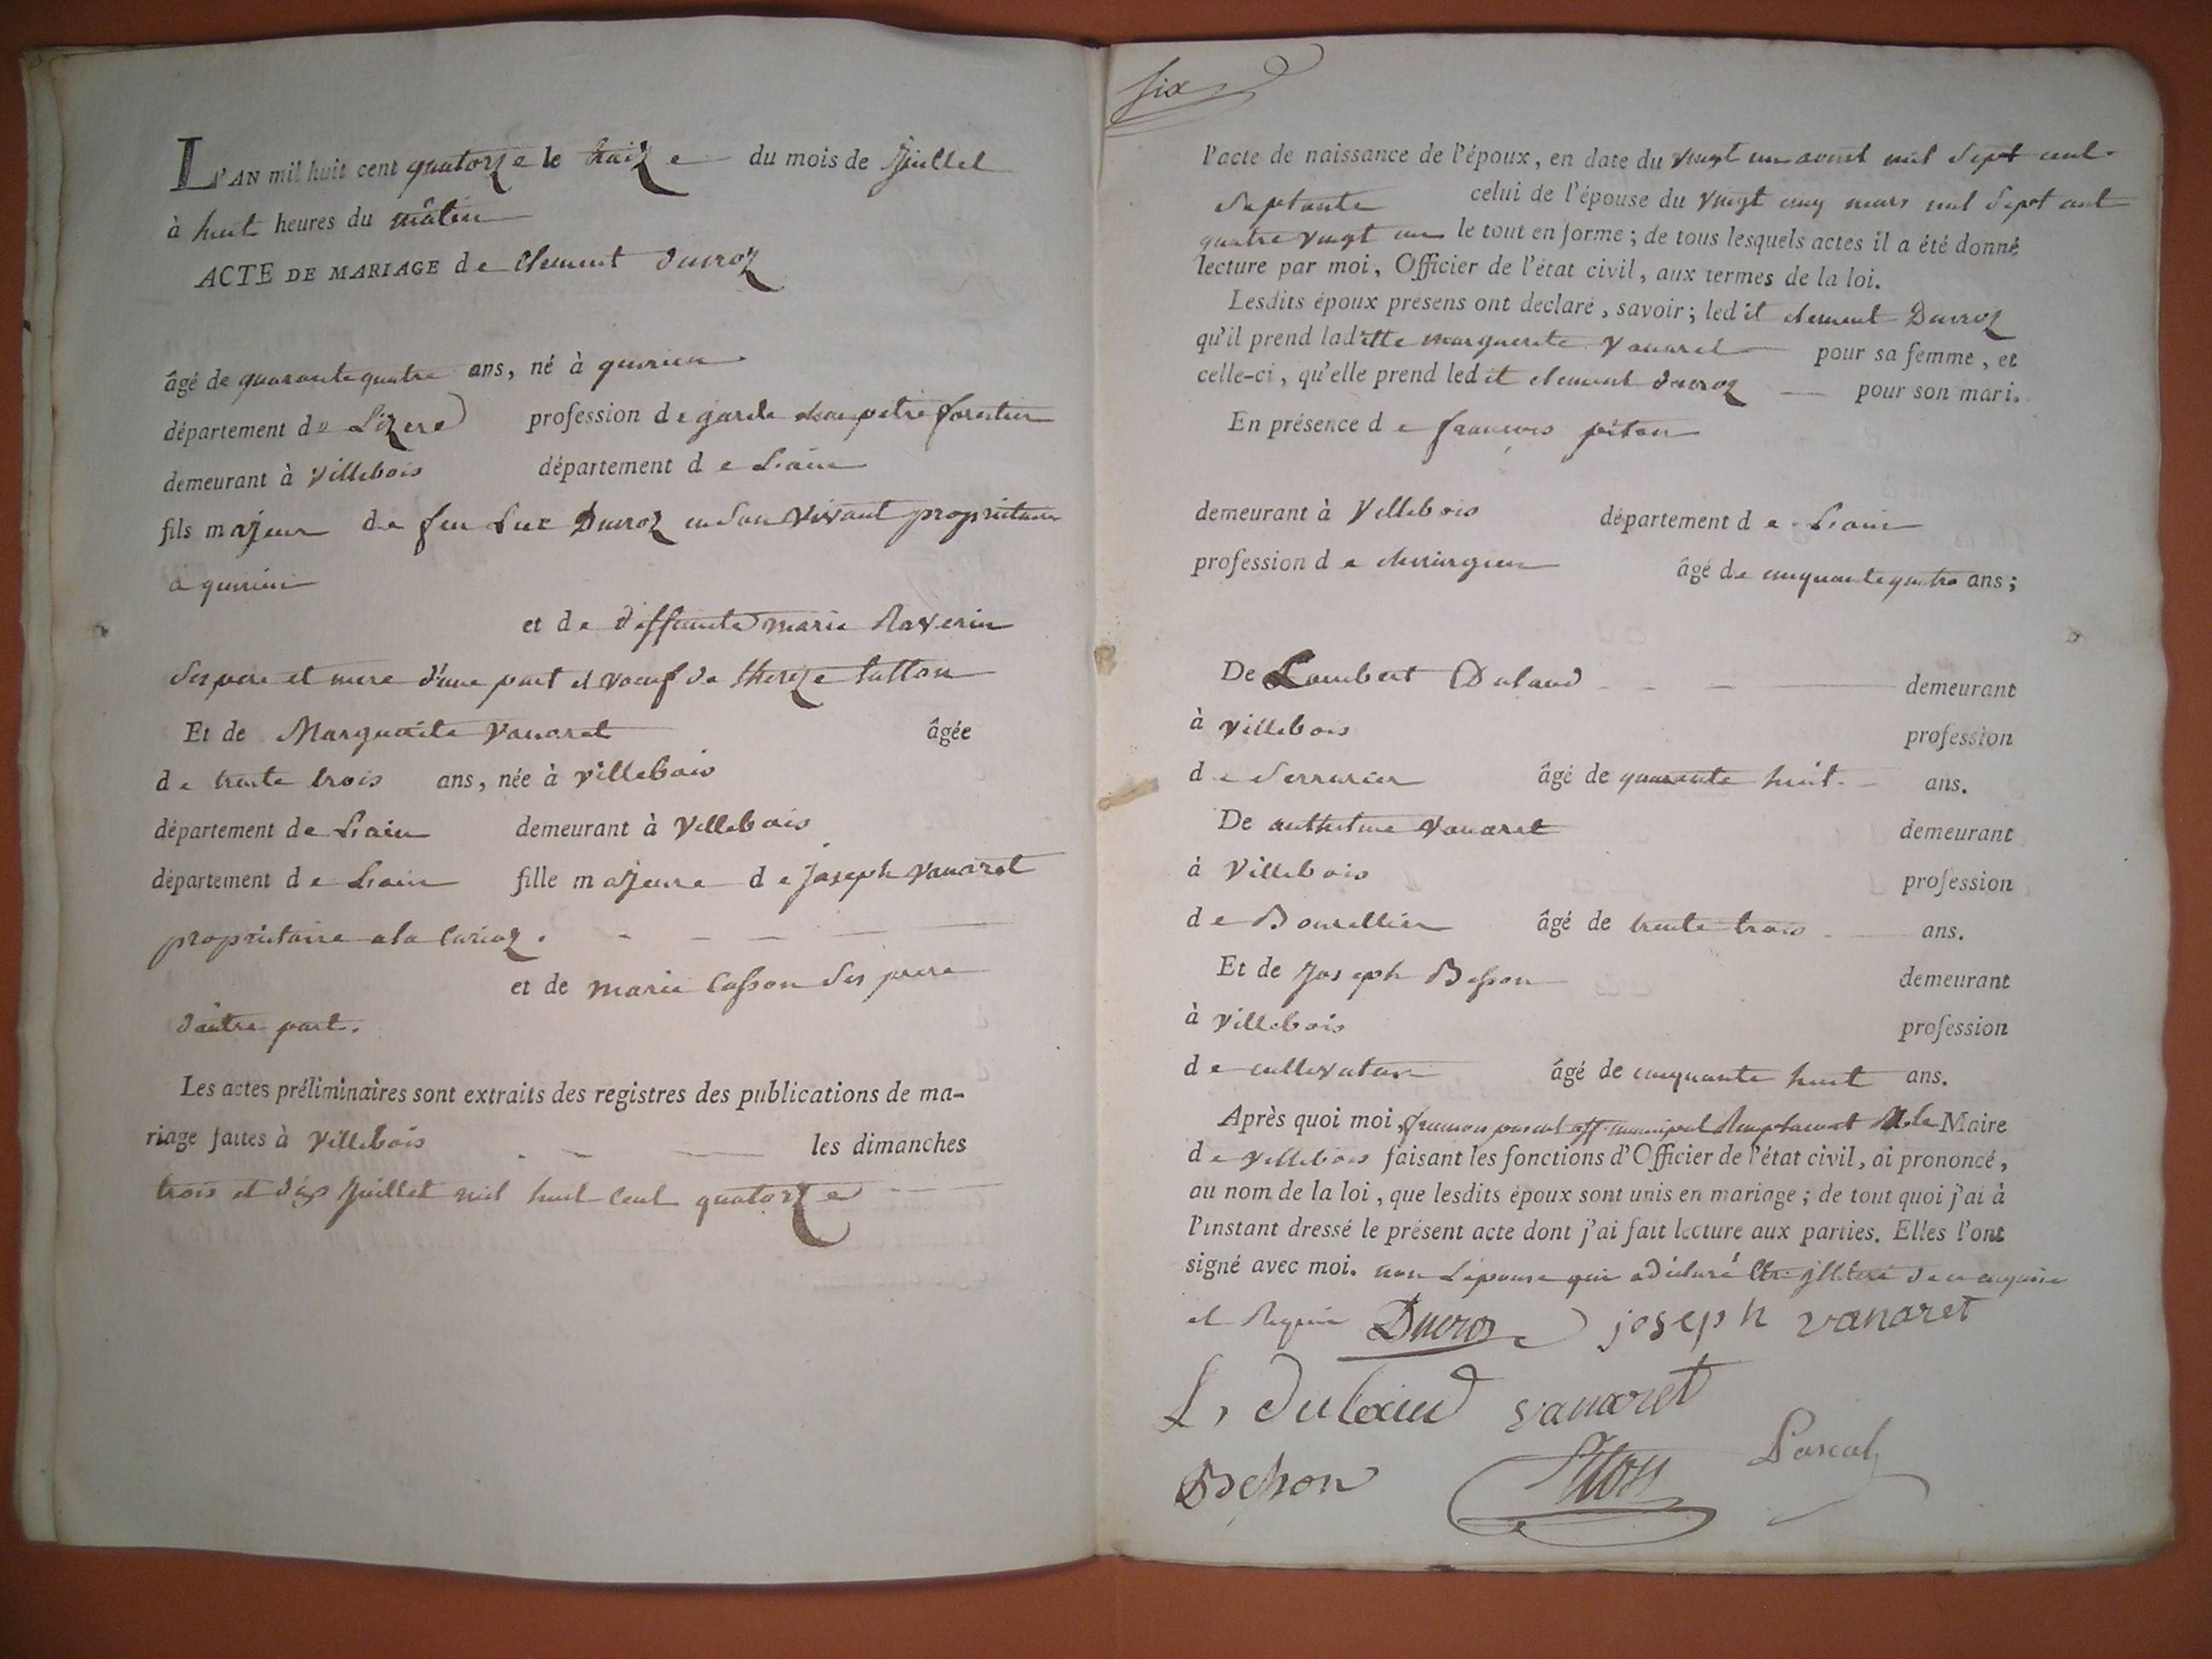 L'AN mil huit cent quatorze le traize du mois de Juillet
à huit heures du mâtin
ACTE DE MARIAGE de Clement Ducroz
âgé de quarante quatre ans, né à quirieu
département de Lizere profession de garde champetre forestier
demeurant à Villebois département de Lain
fils majeur de feu Luc Ducroz en son vivant proprietaire
a quirieu
et de deffunte marie Raverin
ses pere et mere d'une part et voeuf de thereze
Et de Marguerite Vanaret âgée
de trente trois ans, née à villebois
département de Lain demeurant à Villebois
département de Lain fille majeure de joseph Vanaret
proprietaire a la
et de marie Casson ses pere
d'autre part.
Les actes préliminaires sont extraits des registres des publications de ma-
riage faites à Villebois les dimanches
trois et dix Juillet mil huit cent quatorze
six
l'acte de naissance de l'époux, en date du vingt un avril mil sept cent
septante celui de l'épouse du vingt cinq mars mil sept cent
quatre vingt un le tout en forme; de tous lesquels actes il a été donné
lecture par moi, Officier de l'état civil, aux termes de la loi.
Lesdits époux présens ont declaré, savoir; ledit clement Ducroz
qu'il prend laditte marguerite Vanaret pour sa femme, et
celle-ci, qu'elle prend ledit clement ducroz pour son mari.
En présence de francois piton
demeurant à Villebois département de Lain
profession de chirurgien âgé de cinquante quatre ans;
De Lambert Dulaud demeurant
à villebois profession
de Serrurier âgé de quarante huit ans.
De anthelme Vanaret demeurant
à Villebois profession
de Bourellier âgé de trente trois ans.
Et de Joseph Besson demeurant
à Villebois profession
de cultivateur âgé de cinquante huit ans.
Après quoi moi, pascal off. municipal Remplacant le Maire
de Villebois faisant les fonctions d'Officier de l'état civil, ai prononcé,
au nom de la loi, que lesdits époux sont unis en mariage; de tout quoi j'ai à
l'instant dressé le présent acte dont j'ai fait lecture aux parties. Elles l'ont
signé avec moi. non L'epouse qui a déclaré etre illiteré de ce enquise
et Requise Ducroz joseph vanaret
L, dulaud vanaret
Besson Piton Pascal